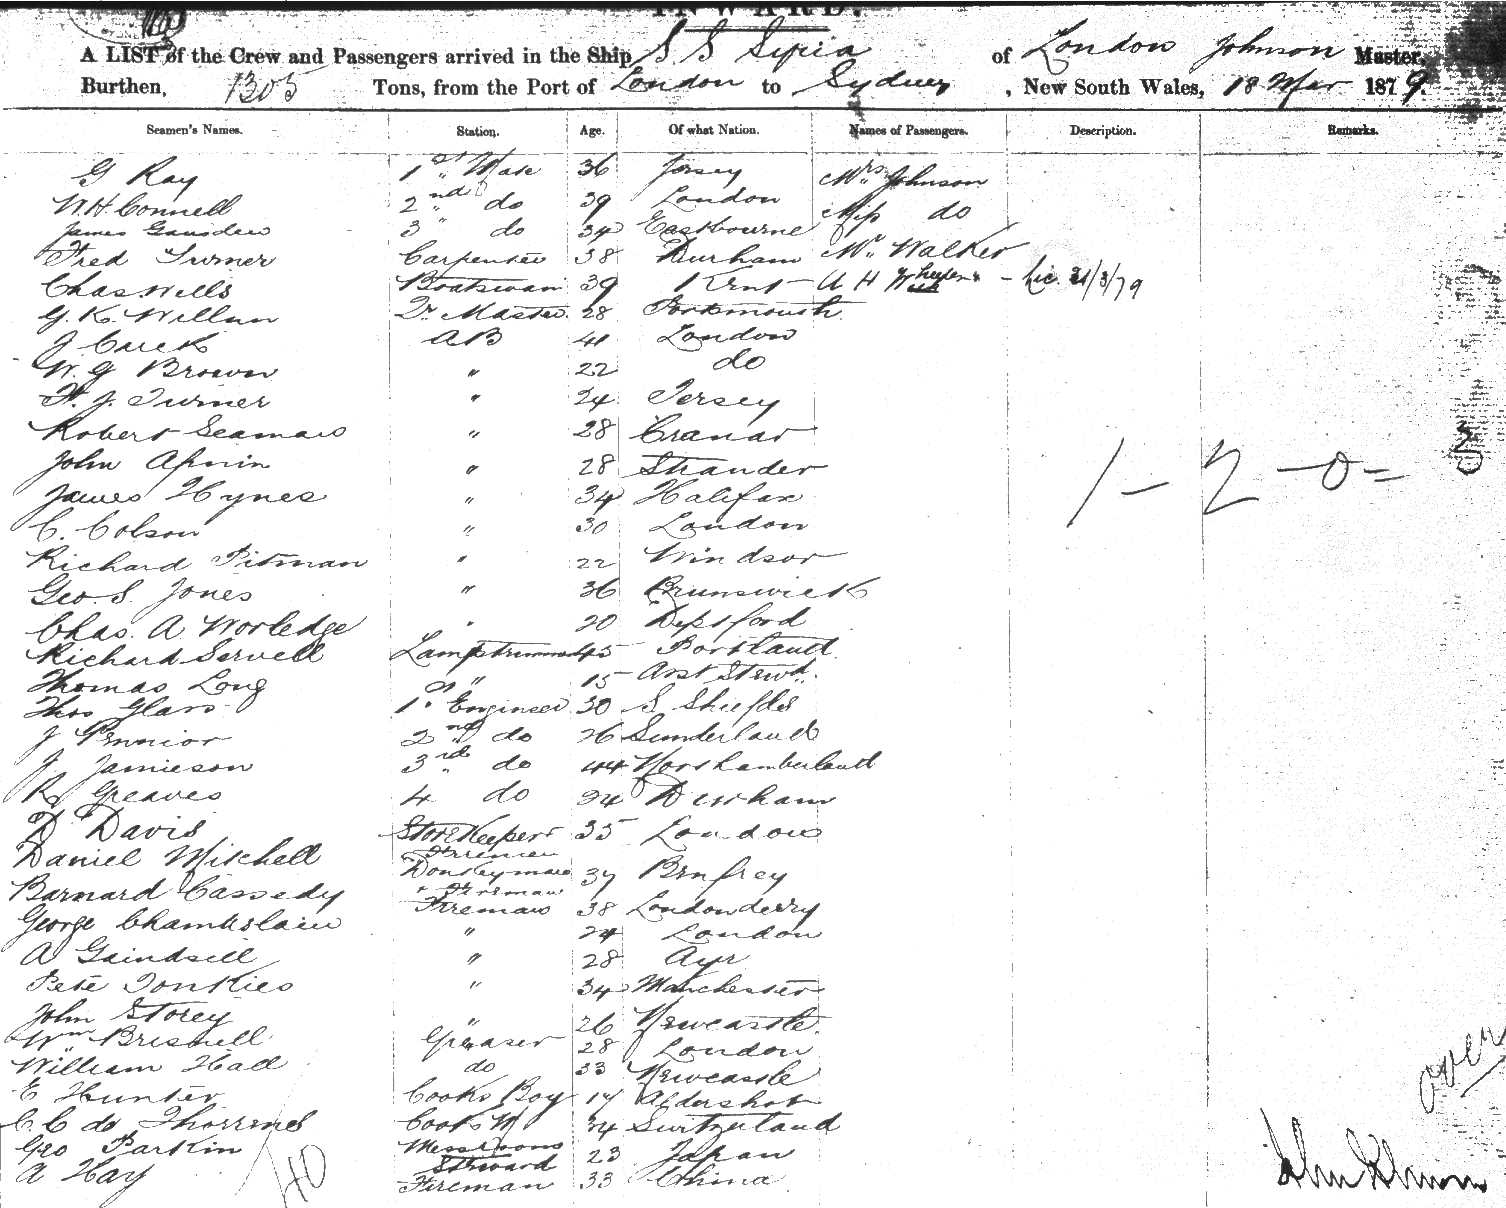 INWARD.
A LIST of the Crew and Passengers arrived in the Ship S S Syria of London Johnson Master,
Burthen, 1305 Tons, from the Port of London to Sydney, New South Wales, 18 Mar 1879.
Seamen's Names. Station. Age. Of what Nation. Names of Passengers. Description. Remarks.
G Ray 1st Mate 36 Jersey Mrs Johnson
W.H. Connell 2nd do 39 London Miss do
James 3 do 34 Eastbourne
Fred Turner Carpenter 38 Durham Mr Walker
Chas. Wells Boatswain 39 Kent A H - Lic. 21/3/79
G. K. Qr Master 28 Portsmouth
J AB 41 London
W. G Brown " 22 do
J. Turner " 24 Jersey
Robert Seaman " 28
John " 28
James Hynes " 34 Halifax
C. Colson " 30 London
Richard Pitman " 22 Windsor
Geo. S. Jones " 36 Brunswick
Chas. A Worledge " 20 Deptford
Richard Lamptrimmer 45 Portland
Thomas Long " 15
Thos Glass 1st Engineer 30 S Shields
J 2nd do 26 Sunderland
J. Jamieson 3rd do 44 Northumberland
R Greaves 4 do 24 Durham
D Davis Storekeeper 35 London
Daniel Mitchell Fireman Donkeyman 37
Barnard Cassedy Fireman Fireman 38 Londonderry
George Chamberlain " 24 London
A " 28 Ayr
Pete " 34 Manchester
John Storey " 26 Newcastle
Wm Greaser 28 London
William Hall do 33 Newcastle
E Hunter Cooks Boy 17 Aldershot
C. C de Cooks M 24 Switzerland
Geo Parkin Messrooms Steward 23 Japan
A Hay Fireman 33 China
40
1 - 2 - 0 =
over
John Johnson